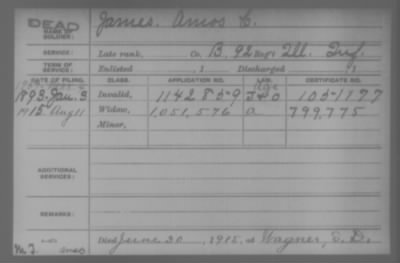 DEAD
NAME OF SOLDIER: James. Amos C.
SERVICE: Late rank, Co. B, 92 Reg't Ill. Inf.
TERM OF SERVICE: Enlisted 1 Discharged 1
DATE OF FILING. CLASS. APPLICATION NO. LAW. CERTIFICATE NO.
1893. Jan. 3 Invalid, 1142859 1051177
1915 Aug 11 Widow, 1,051,576 a 799,775
Minor,
ADDITIONAL SERVICES:
REMARKS:
Died June 30, 1915, at Wagner, S.D.